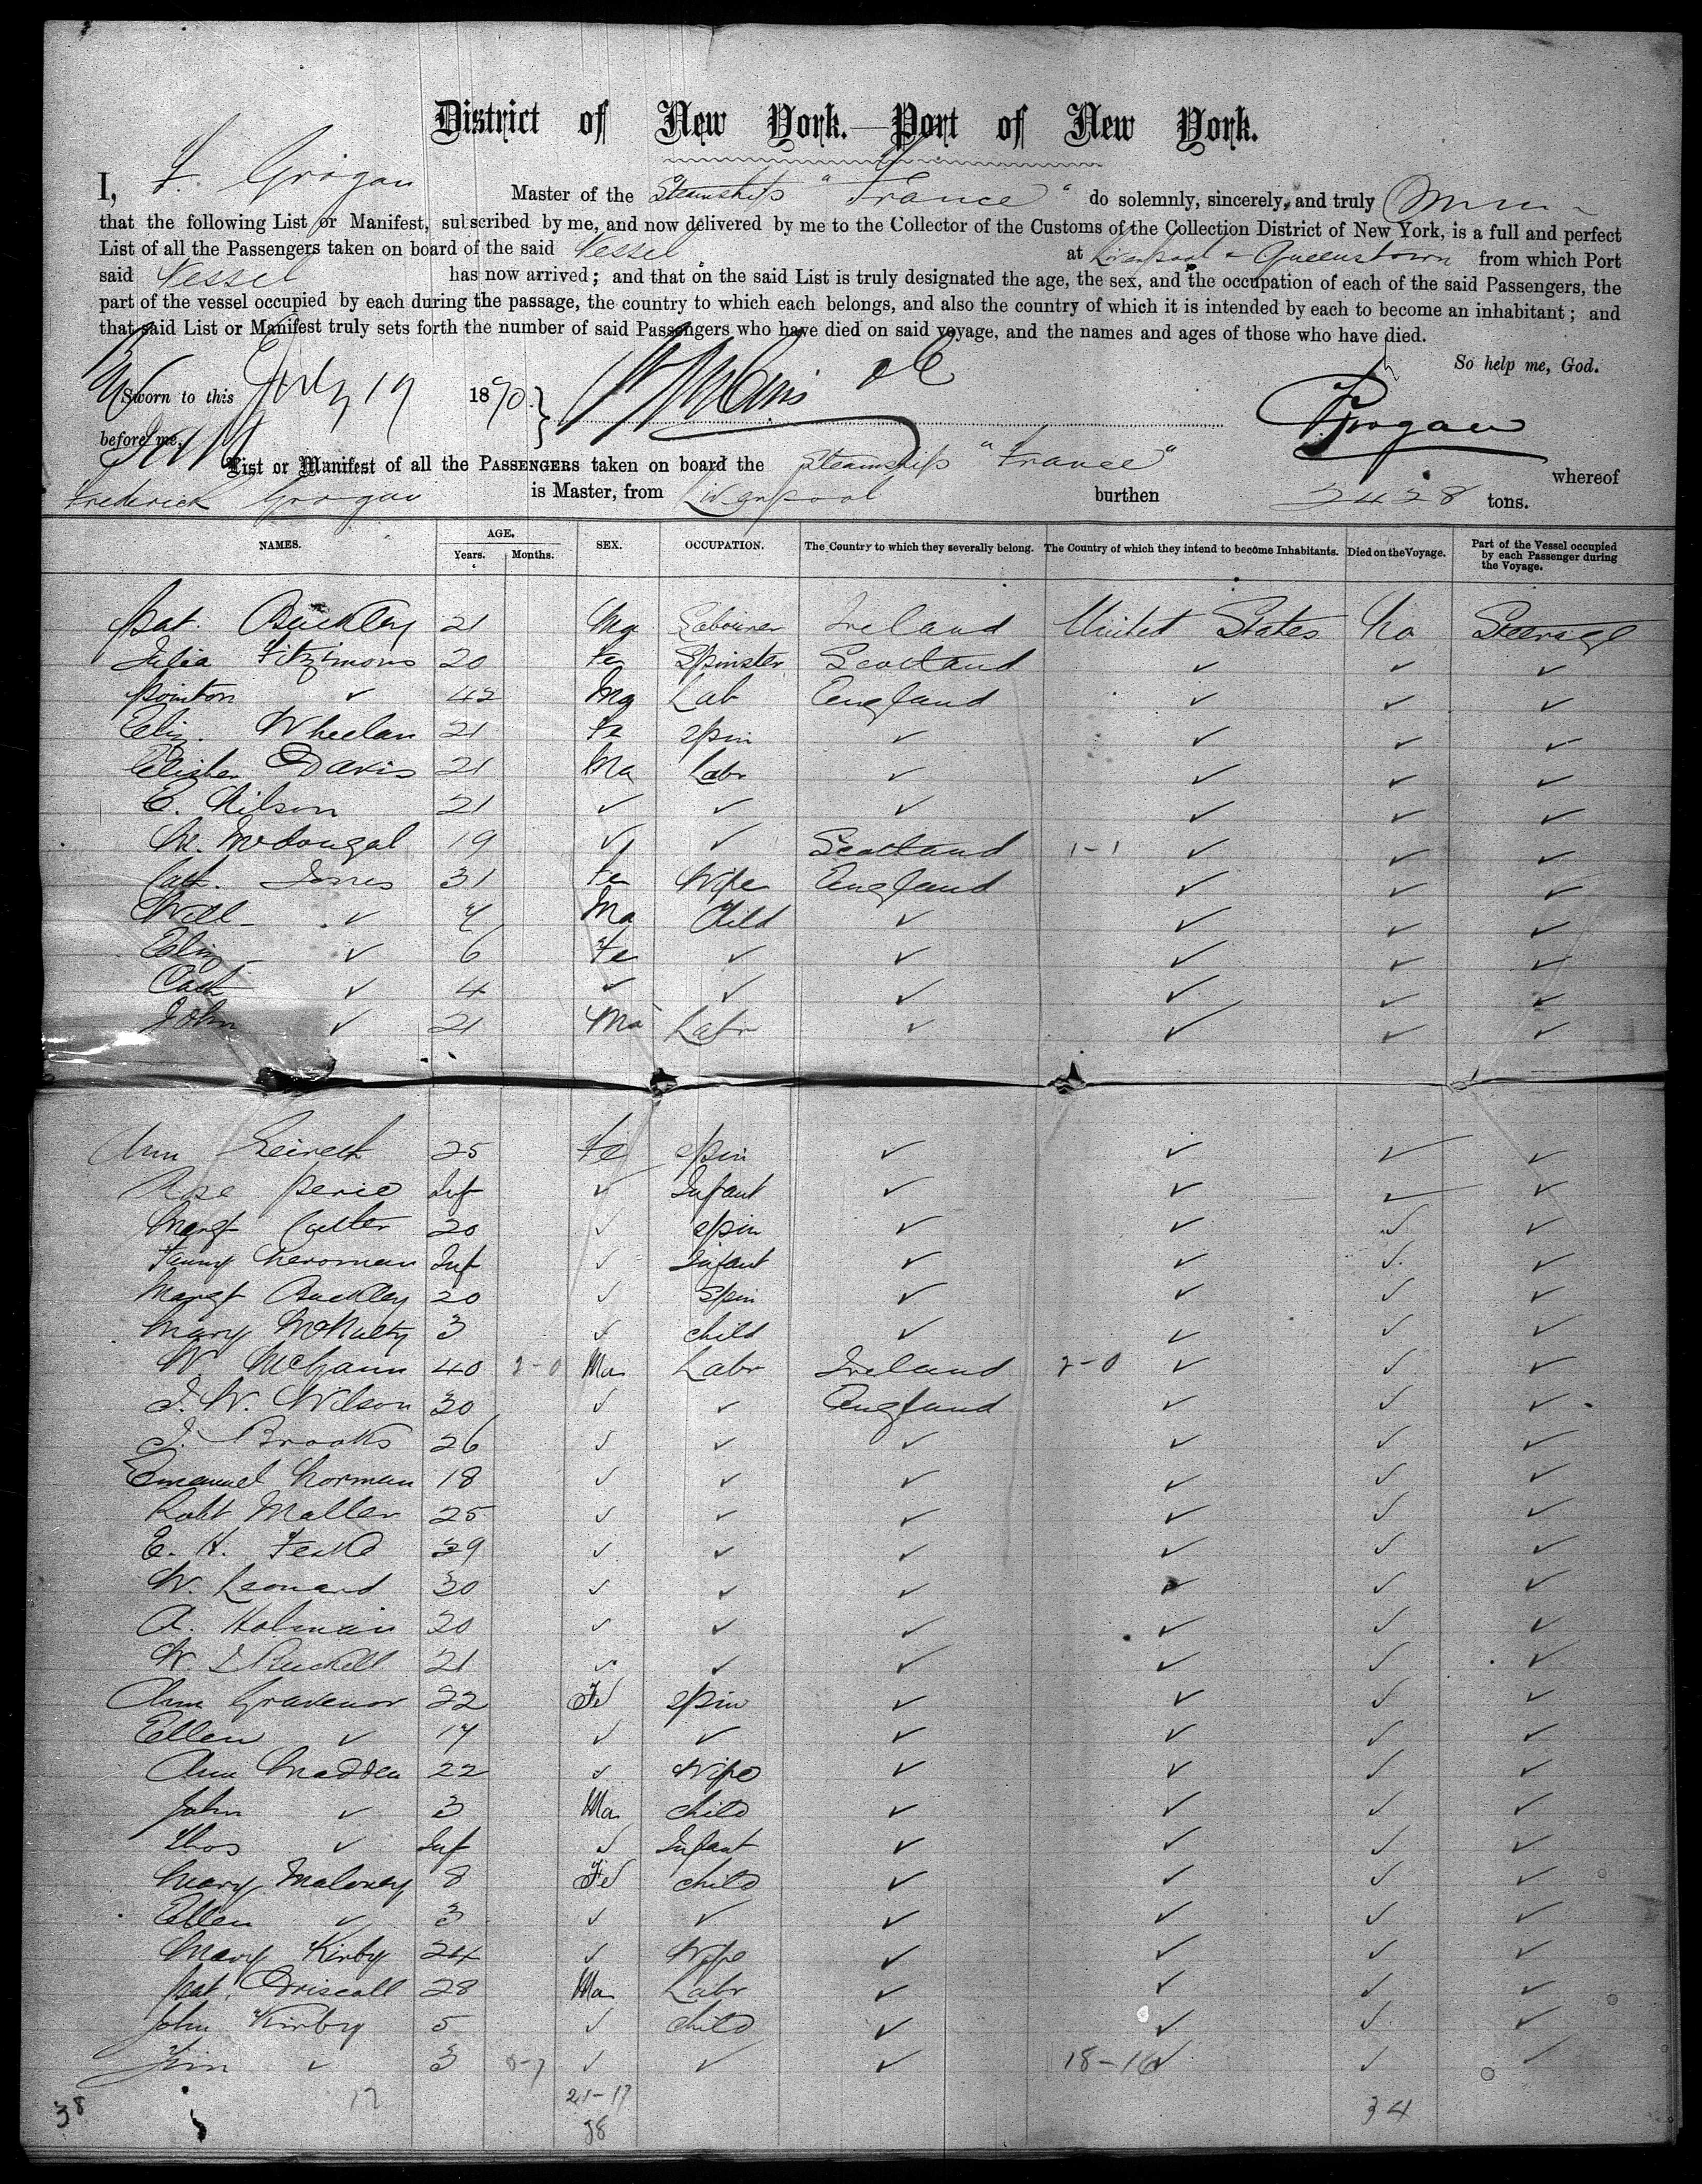 District of New York.—Port of New York.
I, F. Grogan Master of the Steamship "France" do solemnly, sincerely, and truly
that the following List or Manifest, subscribed by me, and now delivered by me to the Collector of the Customs of the Collection District of New York, is a full and perfect
List of all the Passengers taken on board of the said Vessel at Liverpool & Queenstown from which Port
said Vessel has now arrived; and that on the said List is truly designated the age, the sex, and the occupation of each of the said Passengers, the
part of the vessel occupied by each during the passage, the country to which each belongs, and also the country of which it is intended by each to become an inhabitant; and
that said List or Manifest truly sets forth the number of said Passengers who have died on said voyage, and the names and ages of those who have died.
So help me, God.
Sworn to this July 19 1890 FGrogan
before me,
List or Manifest of all the PASSENGERS taken on board the Steamship "France" whereof
Frederick Grogan is Master, from Liverpool burthen 2428 tons.
NAMES. AGE. Years. Months. SEX. OCCUPATION. The Country to which they severally belong. The Country of which they intend to become Inhabitants. Died on the Voyage. Part of the Vessel occupied by each Passenger during the Voyage.
Pat. Buckley 21 Ma Labourer Ireland United States No Steerage
Julia Fitzimons 20 Fe Spinster Scotland ✓ ✓ ✓
Pointon ✓ 42 Ma Lab England ✓ ✓ ✓
Eliz. Wheelan 21 Fe Spin ✓ ✓ ✓ ✓
Elisha Davis 21 Ma Labr ✓ ✓ ✓ ✓
E. Nilson 21 ✓ ✓ ✓ ✓ ✓ ✓
M. McDougal 19 ✓ ✓ Scotland 1-1 ✓ ✓ ✓
Cath. Jones 31 Fe Wife England ✓ ✓ ✓
Will ✓ 7 Ma Child ✓ ✓ ✓ ✓
Eliz ✓ 6 Fe ✓ ✓ ✓ ✓ ✓
Cath ✓ 4 ✓ ✓ ✓ ✓ ✓ ✓
John ✓ 21 Ma Labr ✓ ✓ ✓ ✓
Ann 25 Fe Spin ✓ ✓ ✓ ✓
Rose Perie Inf ✓ Infant ✓ ✓ ✓ ✓
Margt Cutter 20 ✓ Spin ✓ ✓ ✓ ✓
Fanny Inf ✓ Infant ✓ ✓ ✓ ✓
Margt Buckley 20 ✓ Spin ✓ ✓ ✓ ✓
Mary McNulty 3 ✓ child ✓ ✓ ✓ ✓
W McGann 40 2-0 Ma Labr Ireland 2-0 ✓ ✓ ✓
J. W. Wilson 30 ✓ ✓ England ✓ ✓ ✓
J. Brooks 26 ✓ ✓ ✓ ✓ ✓ ✓
Emanuel Norman 18 ✓ ✓ ✓ ✓ ✓ ✓
Robt Maller 25 ✓ ✓ ✓ ✓ ✓ ✓
E. H. 29 ✓ ✓ ✓ ✓ ✓ ✓
W. Leonard 30 ✓ ✓ ✓ ✓ ✓ ✓
A. Holman 20 ✓ ✓ ✓ ✓ ✓ ✓
W. 21 ✓ ✓ ✓ ✓ ✓ ✓
Ann Gravenor 22 Fe Spin ✓ ✓ ✓ ✓
Ellen ✓ 17 ✓ ✓ ✓ ✓ ✓ ✓
Ann Madden 22 ✓ Wife ✓ ✓ ✓ ✓
John ✓ 3 Ma child ✓ ✓ ✓ ✓
Thos ✓ Inf ✓ Infant ✓ ✓ ✓ ✓
Mary Maloney 8 Fe child ✓ ✓ ✓ ✓
Ellen ✓ 3 ✓ ✓ ✓ ✓ ✓ ✓
Mary Kirby 24 ✓ Wife ✓ ✓ ✓ ✓
Pat. Driscoll 28 Ma Labr ✓ ✓ ✓ ✓
John Kirby 5 ✓ child ✓ ✓ ✓ ✓
Jim ✓ 3 8-7 ✓ ✓ ✓ 18-16 ✓ ✓ ✓
38 17 21-17 34
38